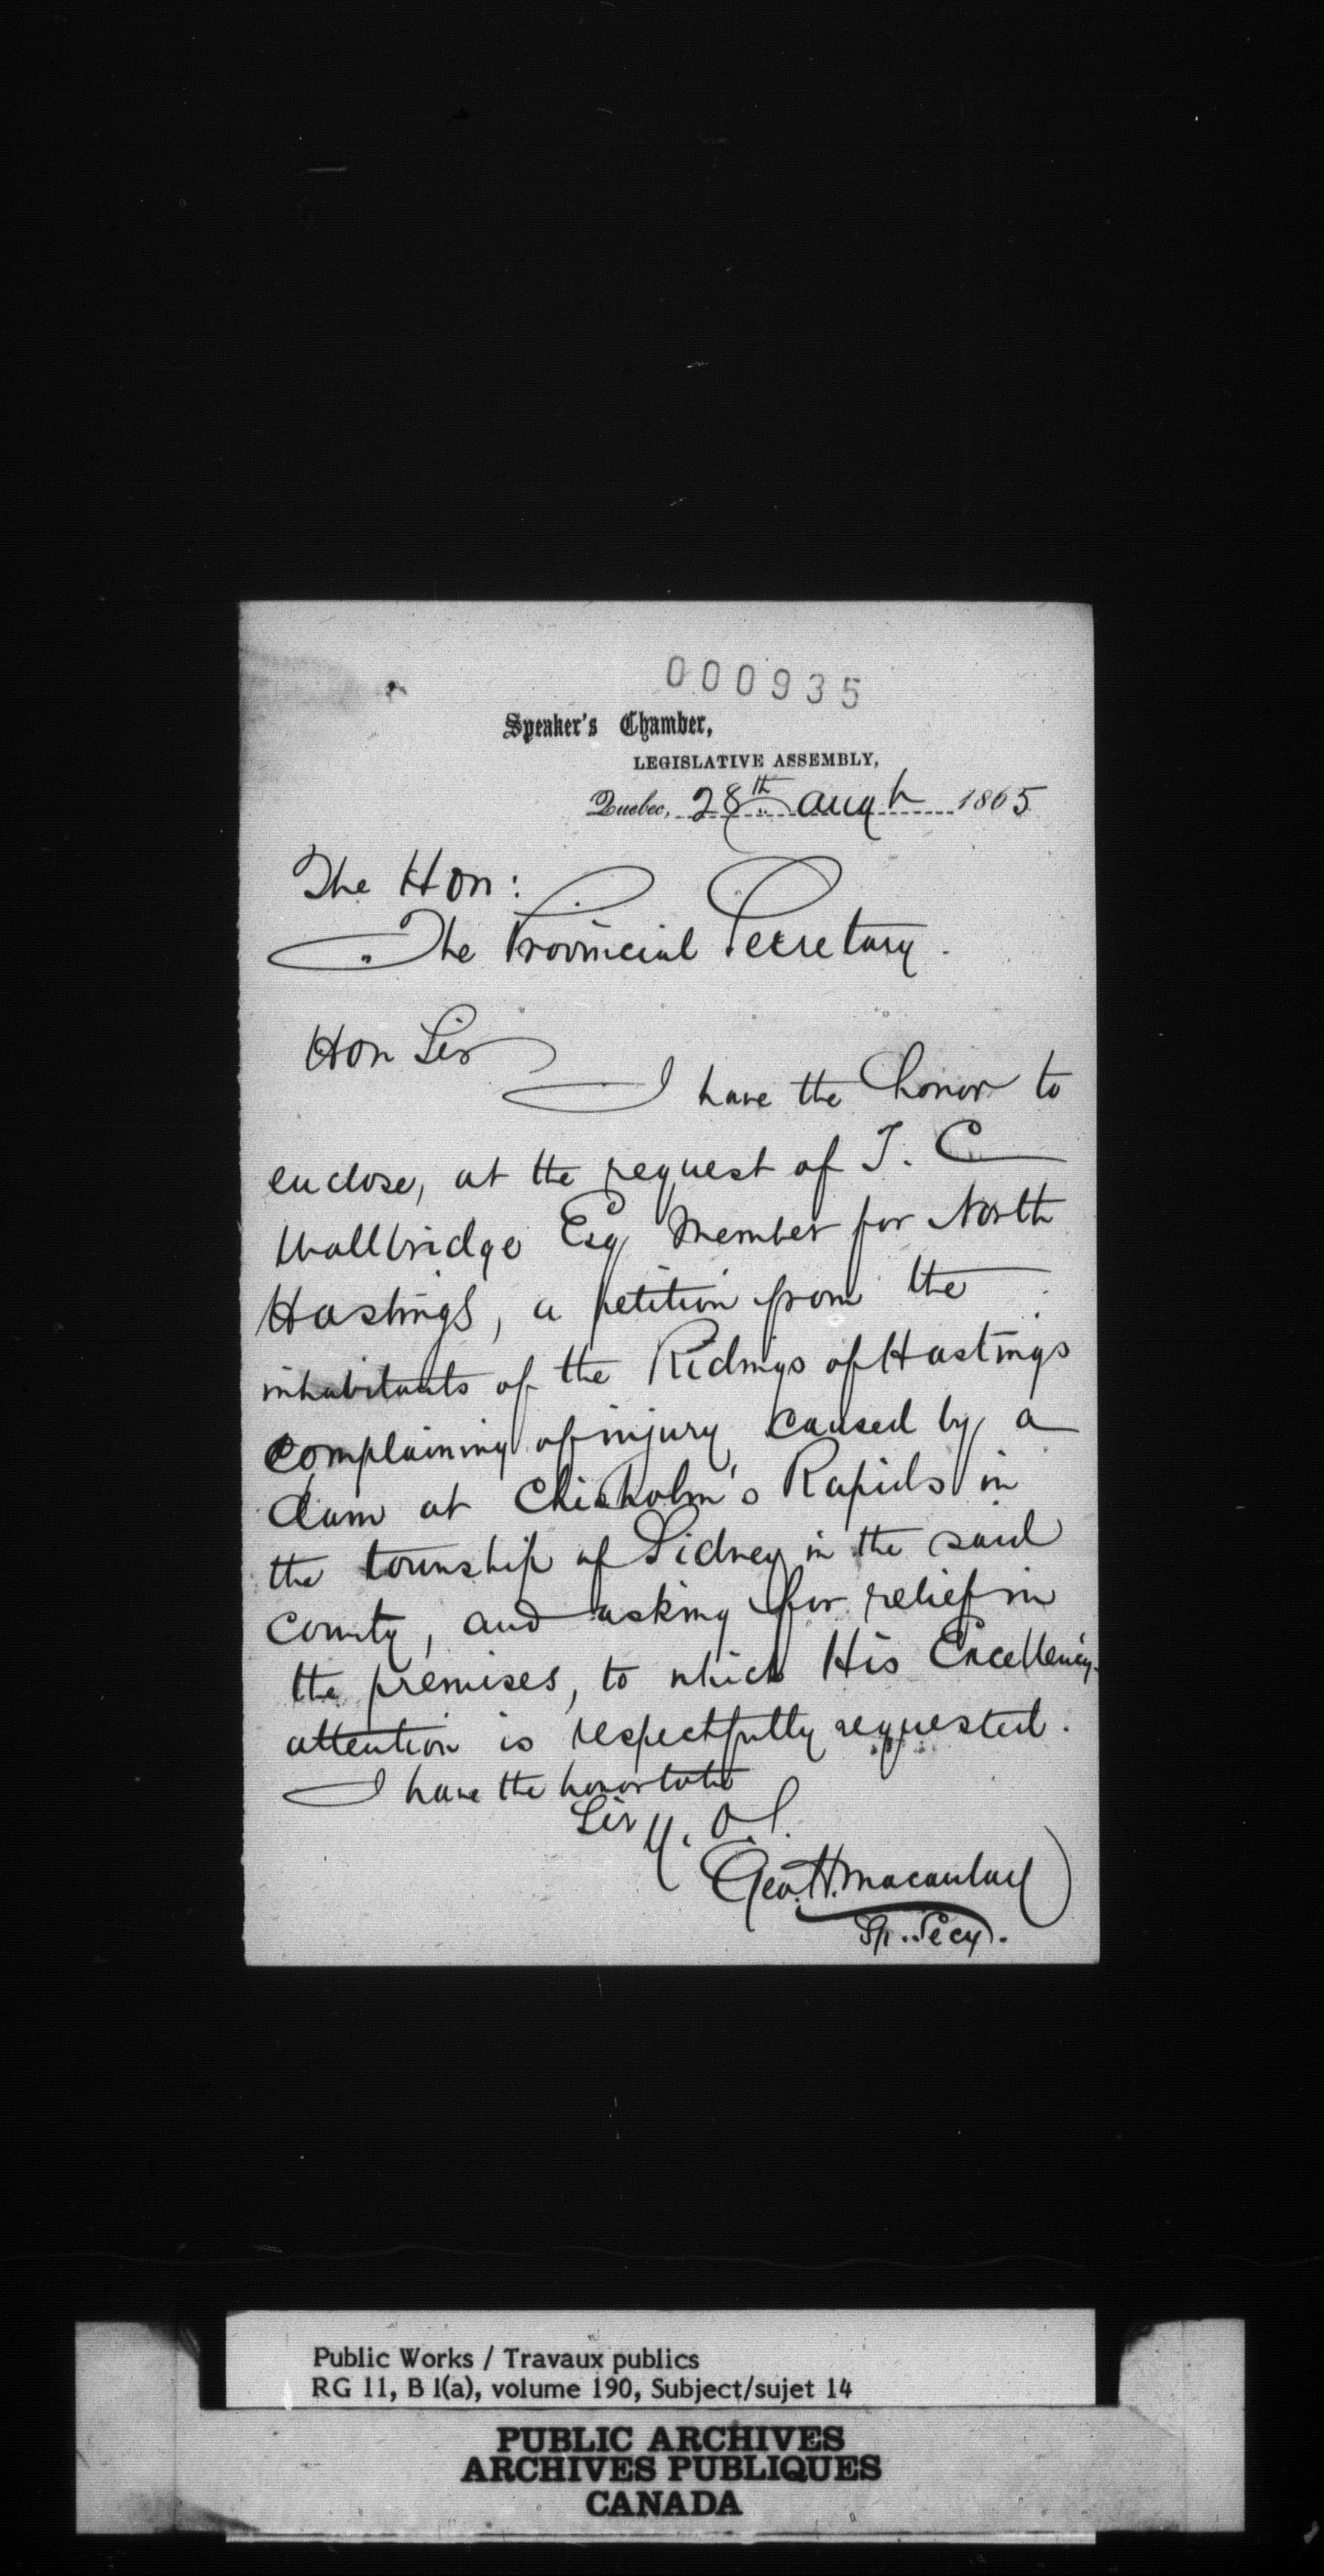 000935
Speaker's Chamber,
LEGISLATIVE ASSEMBLY,
Quebec, 28th Augt 1865
The Hon:
The Provincial Secretary.
Hon Sir
I have the honor to
enclose, at the request of T. C
Wallbridge Esq Member for North
Hastings, a petition from the
inhabitants of the Ridings of Hastings
complaining of injury caused by a
dam at Chisholm's Rapids in
the township of Sidney in the said
County, and asking for relief in
the premises, to which His Excellency
attention is respectfully requested.
I have the honor to be
Sir Y. O. S.
Geo. H. Macaulay
Sp. Secy.
Public Works / Travaux publics
RG 11, B 1(a), volume 190, Subject/sujet 14
PUBLIC ARCHIVES
ARCHIVES PUBLIQUES
CANADA